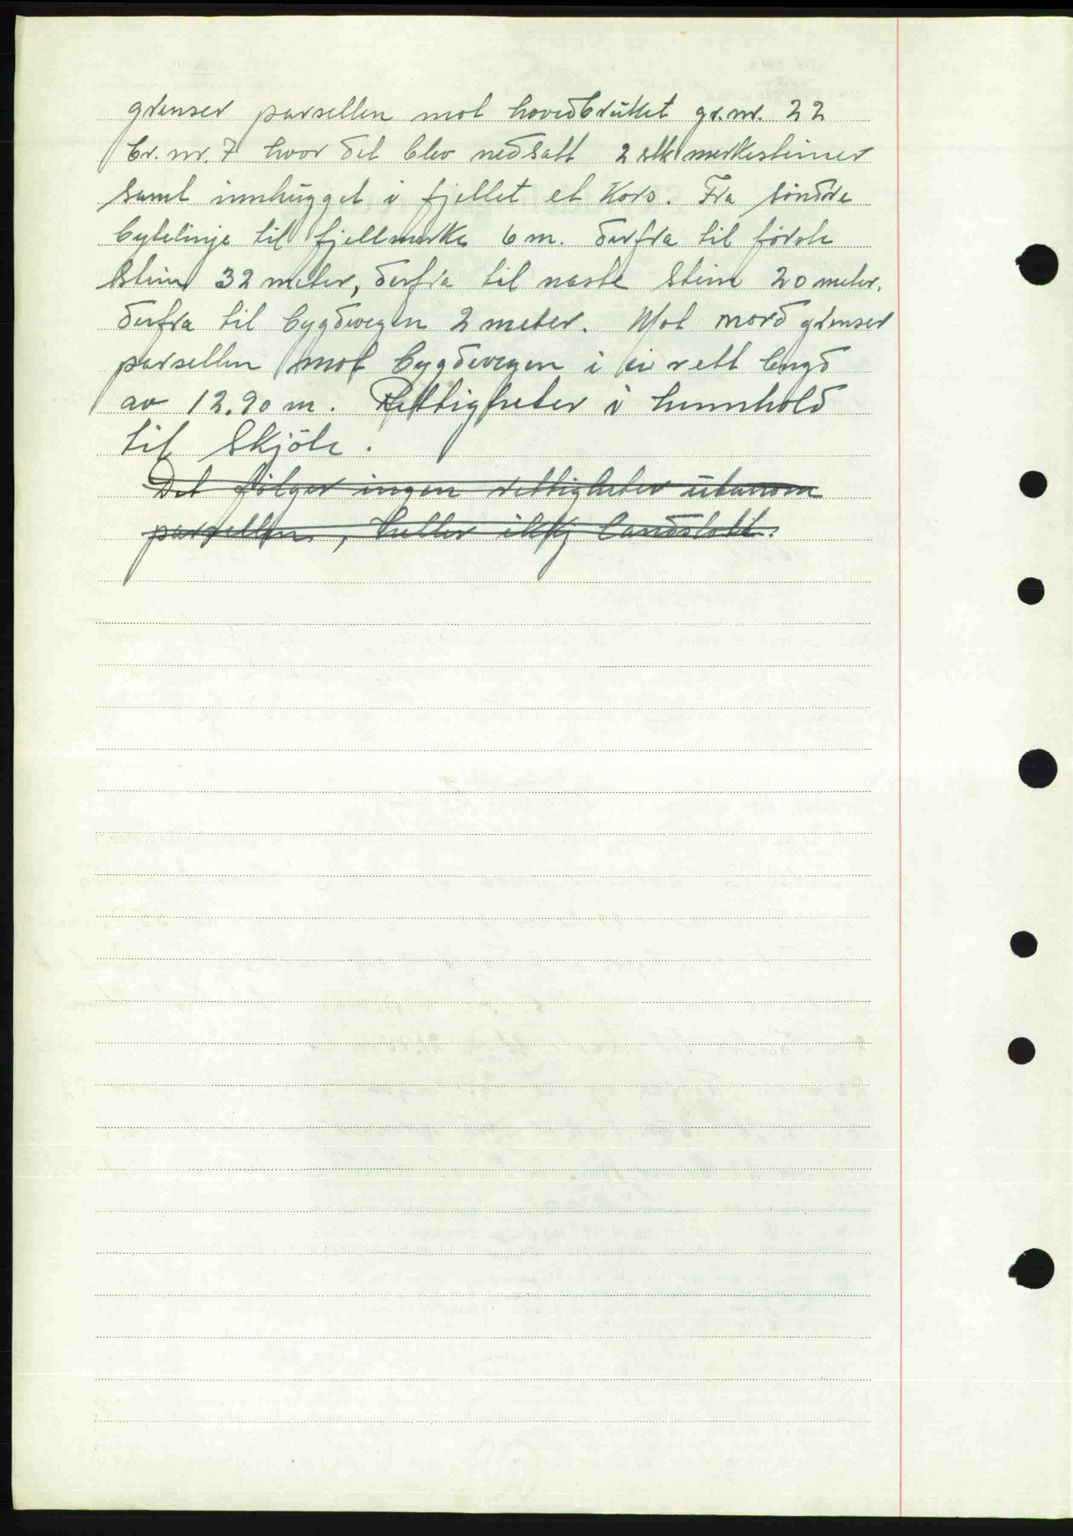 grenser parsellen mot hovedbruket gr.nr. 22
br. nr. 7 hvor det blev nedsatt 2 stk merkesteiner
samt innhugget i fjellet et Kors. Fra söndre
bytelinje til fjellmerke 6 m. derfra til förste
stein 32 meter, derfra til naste stein 20 meter.
derfra til bygdevegen 2 meter. Mot nord grenser
parsellen mot bygdevegen i ei rett lengd
av 12.90 m. Rettigheter i hennhold
til Skjöte.
Det følger ingen rettigheter utanom
parsellen, heller ikkj landslott.